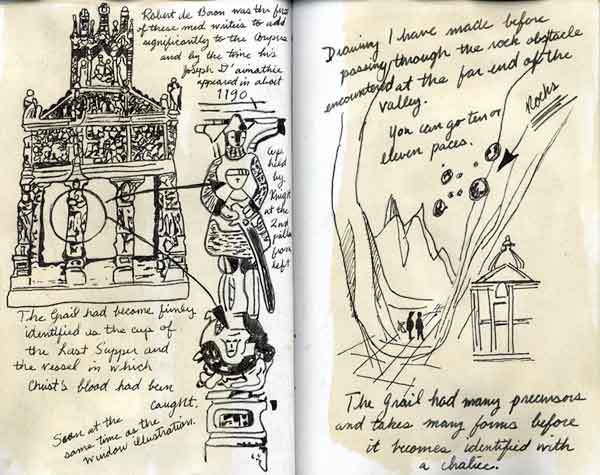 Robert de Boron was the first
of these med writers to add
significantly to the Corpus
and by the time his
Joseph D'aimathie
appeared in about
1190.
Cup
held
by
Knight
at the
2nd
pillar
from
left
The Grail had become firmly
identified as the cup of
the Last Supper and
the vessel in which
Christ's blood had been
caught.
Seen at the
same time as the
window illustration.
Drawing I have made before
passing through the rock obstacle
encountered at the far end of the
valley.
Rocks
You can go ten or
eleven paces.
The Grail had many precursors
and takes many forms before
it becomes identified with
a chalice.